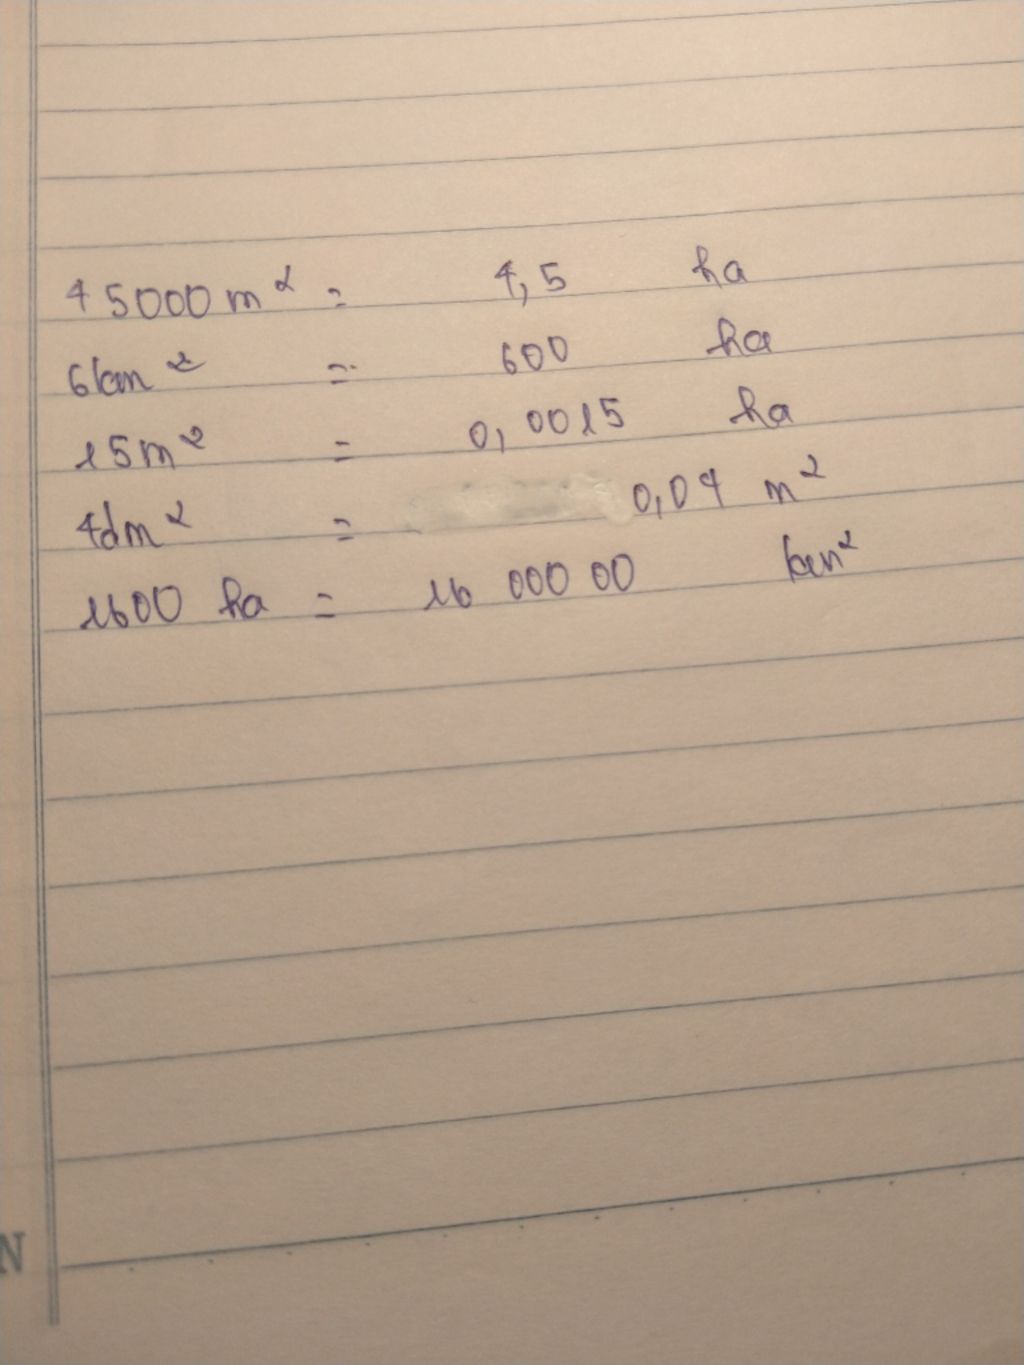 45000 m² = 4,5 ha
6 km² = 600 ha
15 m² = 0,0015 ha
4 dm² = 0,04 m²
1600 ha = 16 000 00 km²
N